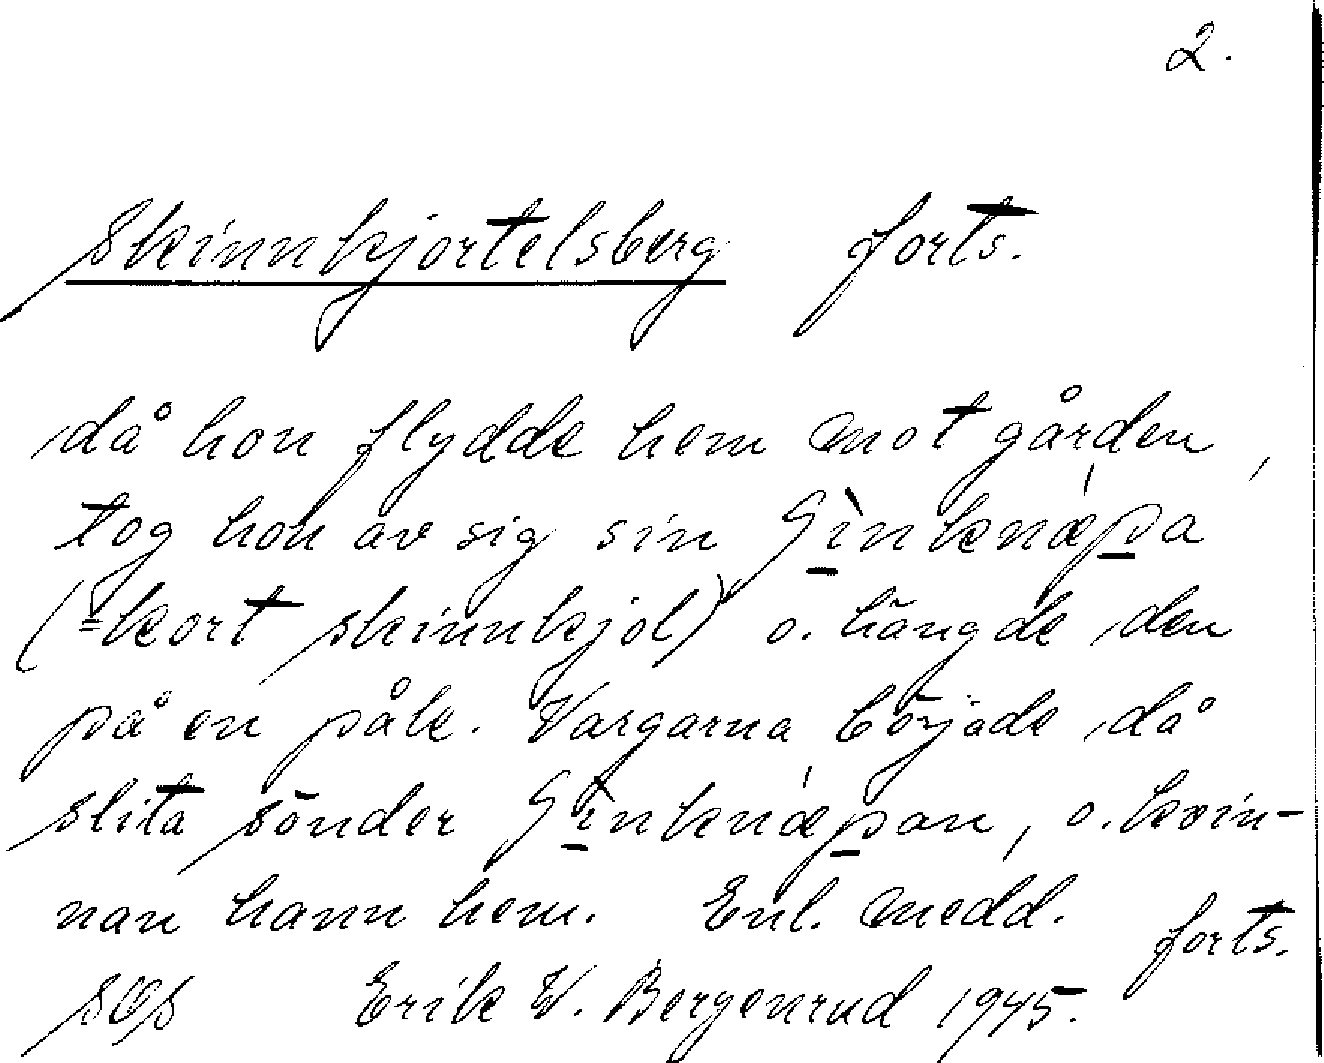 2.
Skinnkjortelsberg forts.
då hon flydde hem mot gården,
tog hon av sig sin
(=kort skinnkjol) o. hängde den
på en påle. Vargarna började då
slita sönder o. kvin-
nan hann hem. Enl. medd.
forts.
Erik W. Bergenrud 1945.